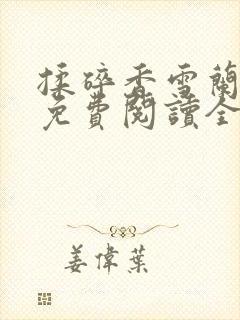 揉碎香雪蘭
免費閱讀全
姜偉葉